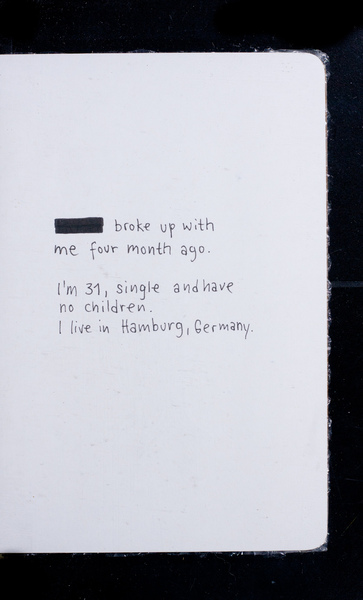 broke up with
me four month ago.
I'm 31, single and have
no children.
I live in Hamburg, Germany.